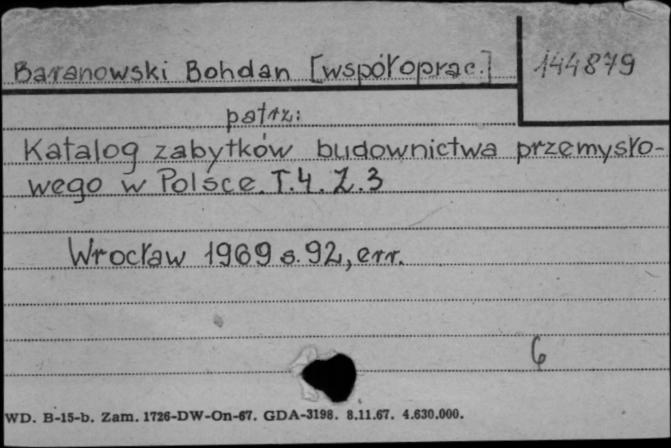 Baranowski Bohdan [współoprac.] 144879
patrz:
Katalog zabytków budownictwa przemysło-
wego w Polsce. T.4. Z.3
Wrocław 1969 s. 92, err.
6
WD. B-15-b. Zam. 1726-DW-On-67. GDA-3198. 8.11.67. 4.630.000.